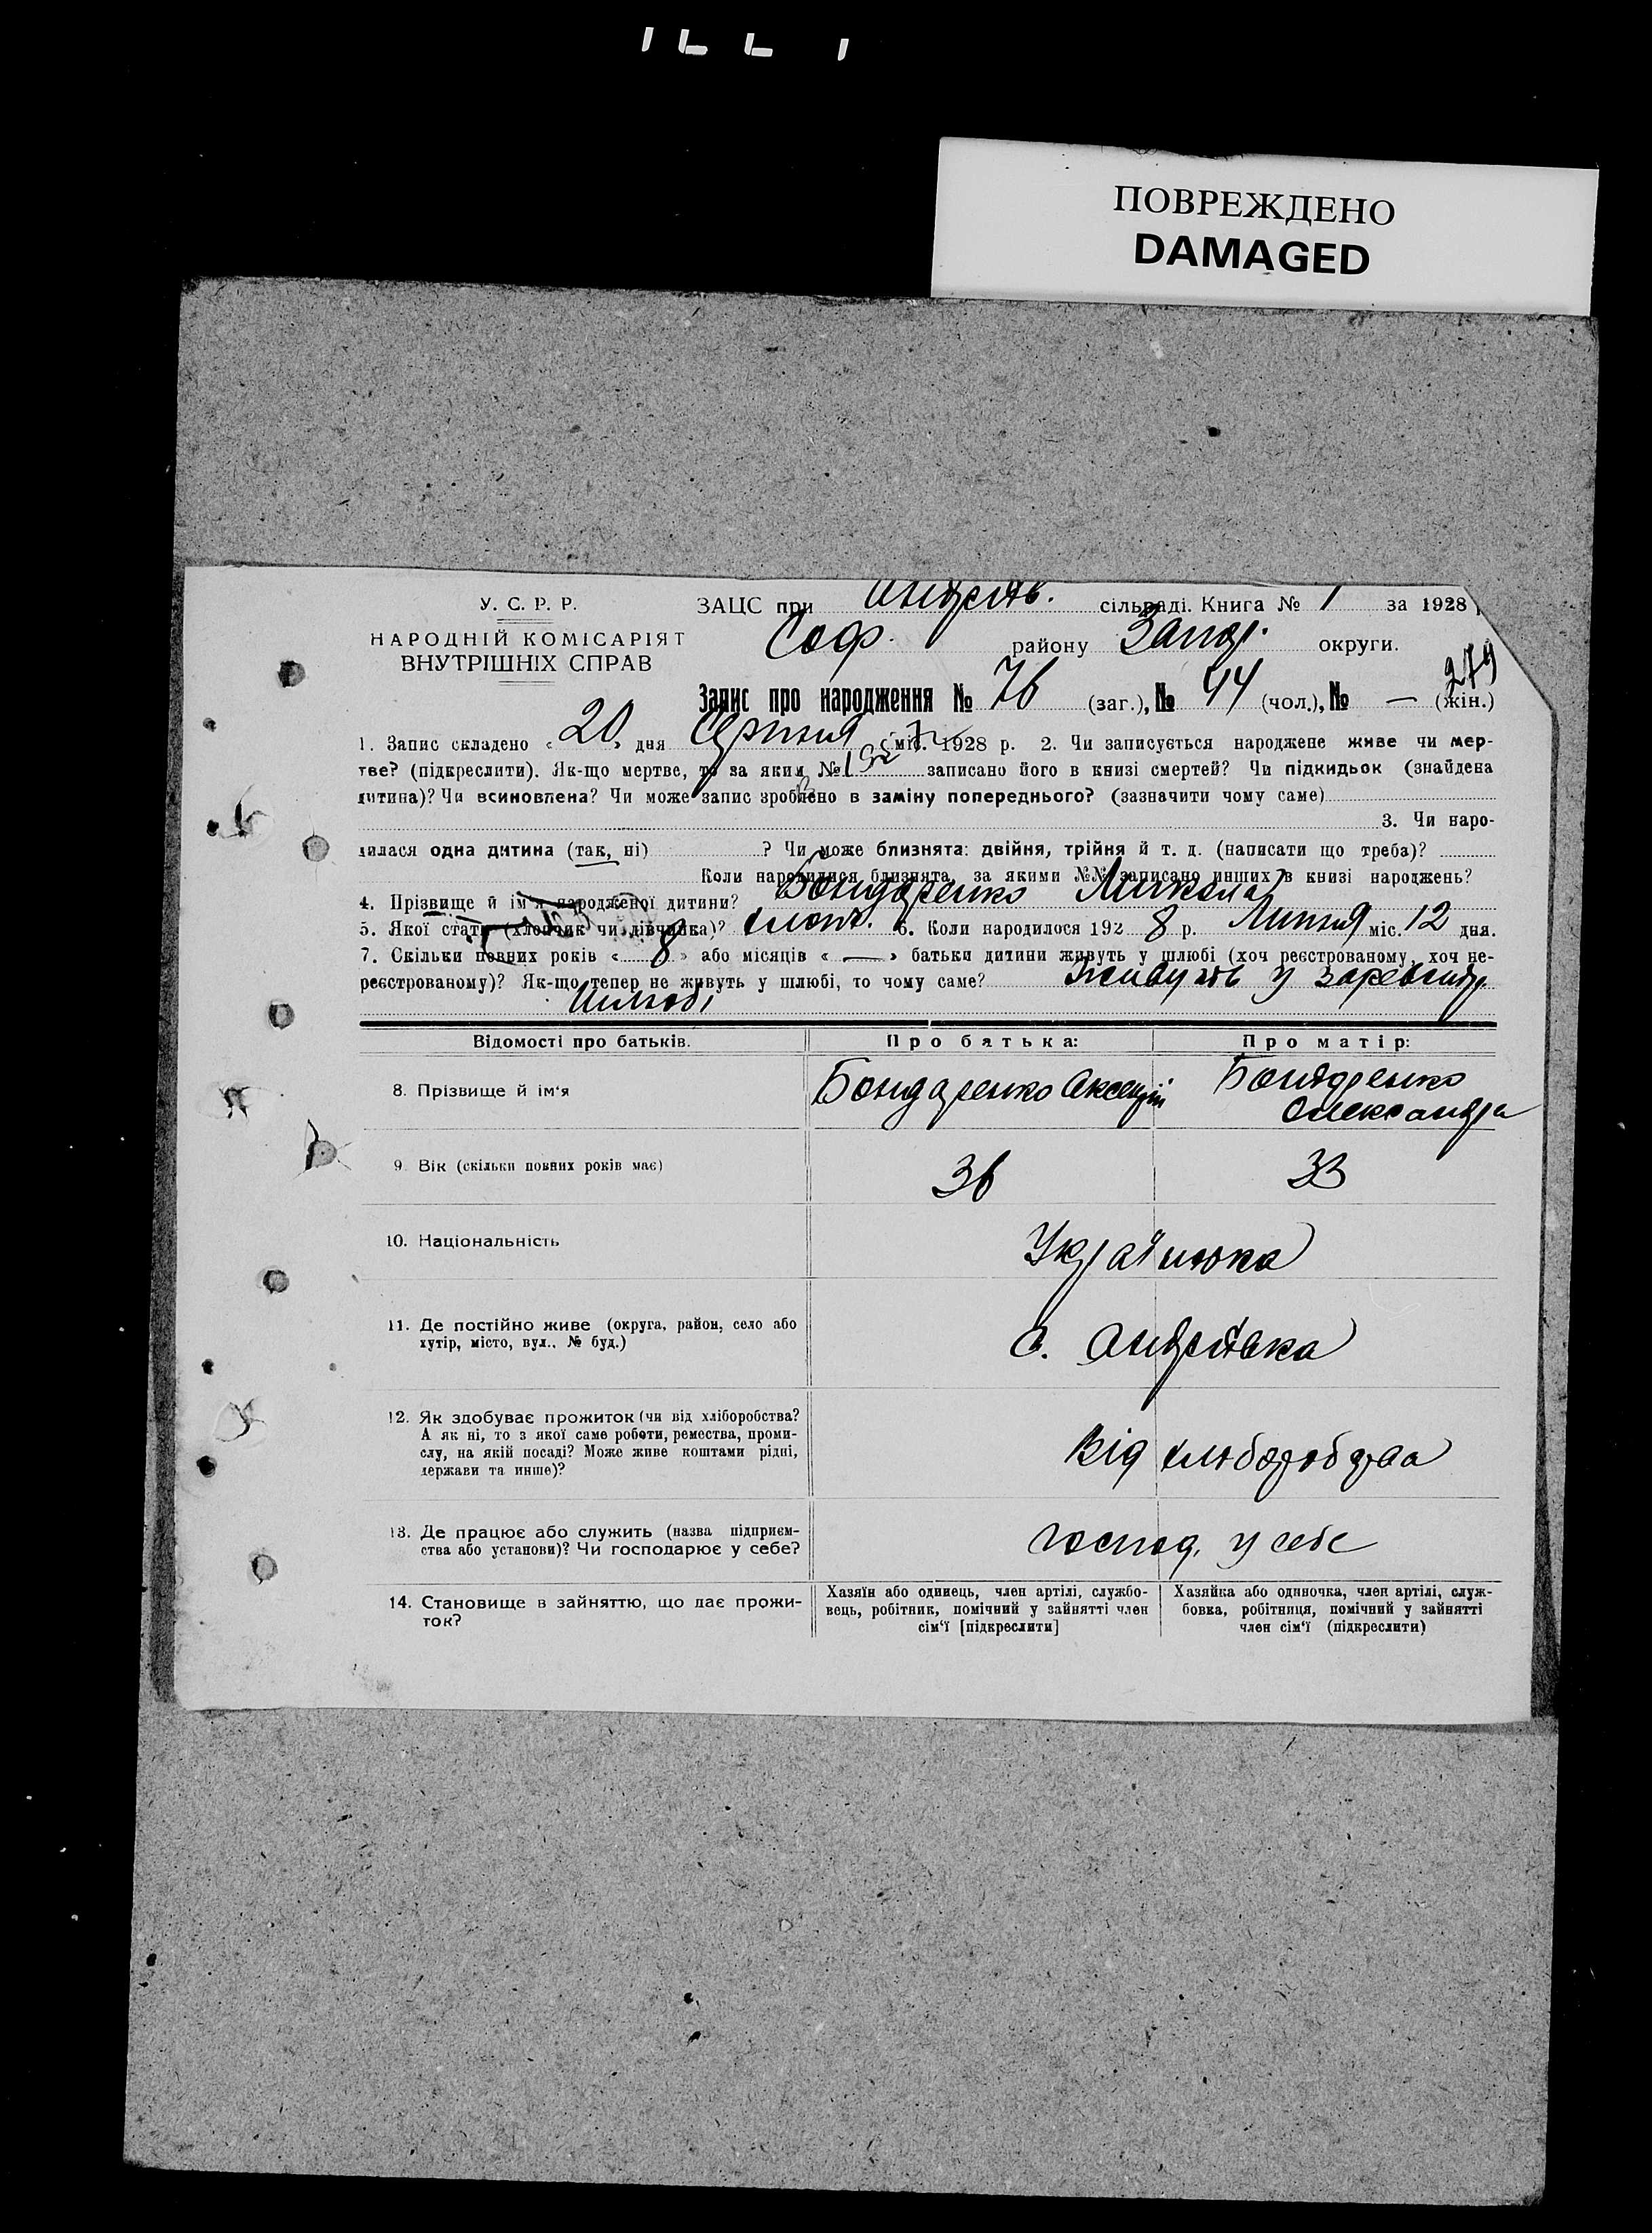 ПОВРЕЖДЕНО
DAMAGED
У. С. Р. Р.
НАРОДНІЙ КОМІСАРІЯТ
ВНУТРІШНІХ СПРАВ
ЗАЦС при Андреїв. сільраді. Книга № 1 за 1928
Соф. району Запор. округи.
279
Запис про народження № 76 (заг.), № 44 (чол.), № — (жін.)
1. Запис складено « 20 » дня Серпня міс. 1928 р. 2. Чи записується народжене живе чи мер-
тве? (підкреслити). Як-що мертве, то за яким № записано його в книзі смертей? Чи підкидьок (знайдена
дитина)? Чи всиновлена? Чи може запис зроблено в заміну попереднього? (зазначити чому саме)
3. Чи наро-
дилася одна дитина (так, ні) ? Чи може близнята: двійня, трійня й т. д. (написати що треба)?
Коли народилися близнята, за якими №№ записано инших в книзі народжень?
4. Прізвище й ім'я народженої дитини? Бондаренко Микола
5. Якої стати (хлопчик чи дівчинка)? хлопч. 6. Коли народилося 192 8 р. Липня міс. 12 дня.
7. Скільки повних років « 8 » або місяців « — » батьки дитини живуть у шлюбі (хоч реєстрованому, хоч не-
реєстрованому)? Як-що тепер не живуть у шлюбі, то чому саме? Живуть у
шлюбі
Відомості про батьків. Про батька: Про матір:
8. Прізвище й ім'я Бондаренко Аксентій Бондаренко
Олександра
9. Вік (скільки повних років має) 36 33
10. Національність Українка
11. Де постійно живе (округа, район, село або
хутір, місто, вул., № буд.) с. Андреївка
12. Як здобуває прожиток (чи від хліборобства?
А як ні, то з якої саме роботи, ремества, проми-
слу, на якій посаді? Може живе коштами рідні,
держави та инше)? Від хлюборобства
13. Де працює або служить (назва підприєм-
ства або установи)? Чи господарює у себе? господ. у себе
14. Становище в зайняттю, що дає прожи-
ток?
Хазяїн або одинець, член артілі, службо-
вець, робітник, помічний у зайнятті член
сім'ї [підкреслити]
Хазяйка або одиночка, член артілі, служ-
бовка, робітниця, помічний у зайнятті
член сім'ї (підкреслити)